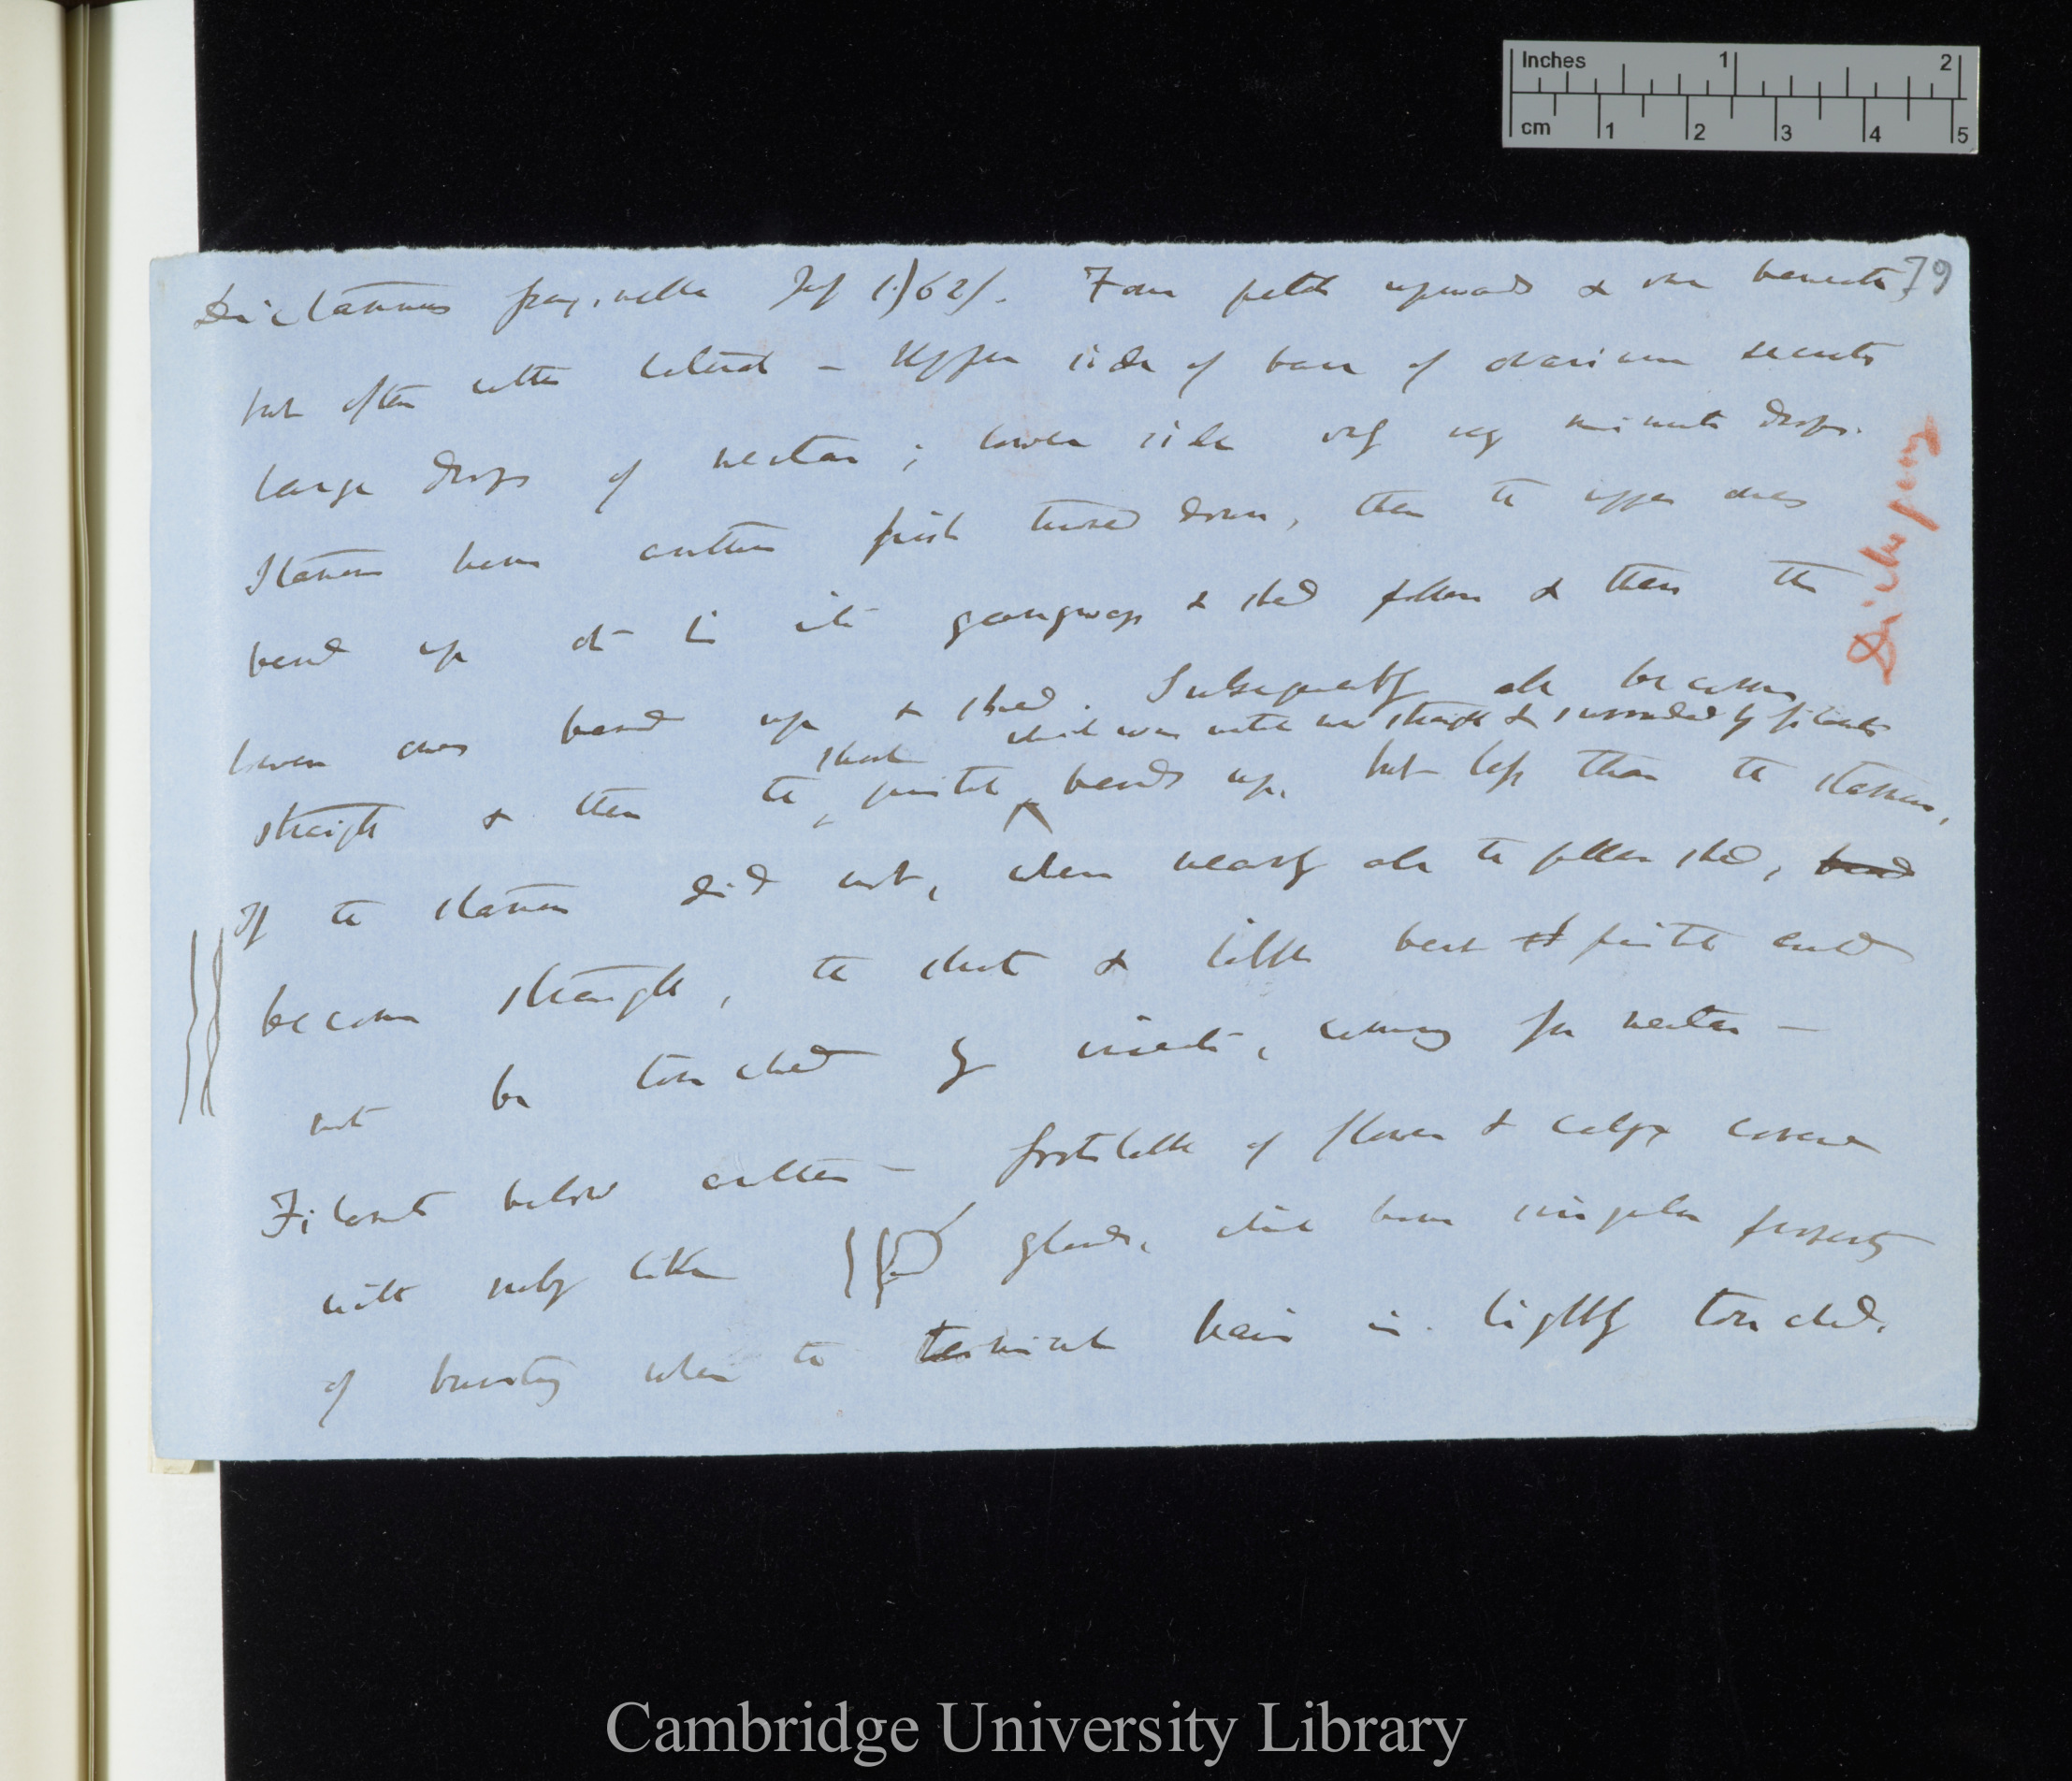 Inches 1 2
cm 1 2 3 4 5
79
Dictamnus fraxinella July 1/62/. Four petals upwards & one beneath,
but often rather lateral – Upper side of base of ovarium secretes
large drops of nectar; lower side only very minute drops.
Stamens have anthers first turned down, then the upper ones
bend up at to into gangway & shed pollen & then the
lower ones bend up & shed. Subsequently all become
short which was until now straight & surrounded by filaments
straight & then the pistil bends up, but less than the stamens,
If the stamens did not, when nearly all the pollen shed, bend
become straight, the short & little bent pistil could
not be touched by insects, coming for nectar –
Filaments below anthers – footstalk of flower & calyx covered
with ruby like glands, which have singular property
of bursting when the terminal hair is lightly touched.
Dichogamy
Cambridge University Library